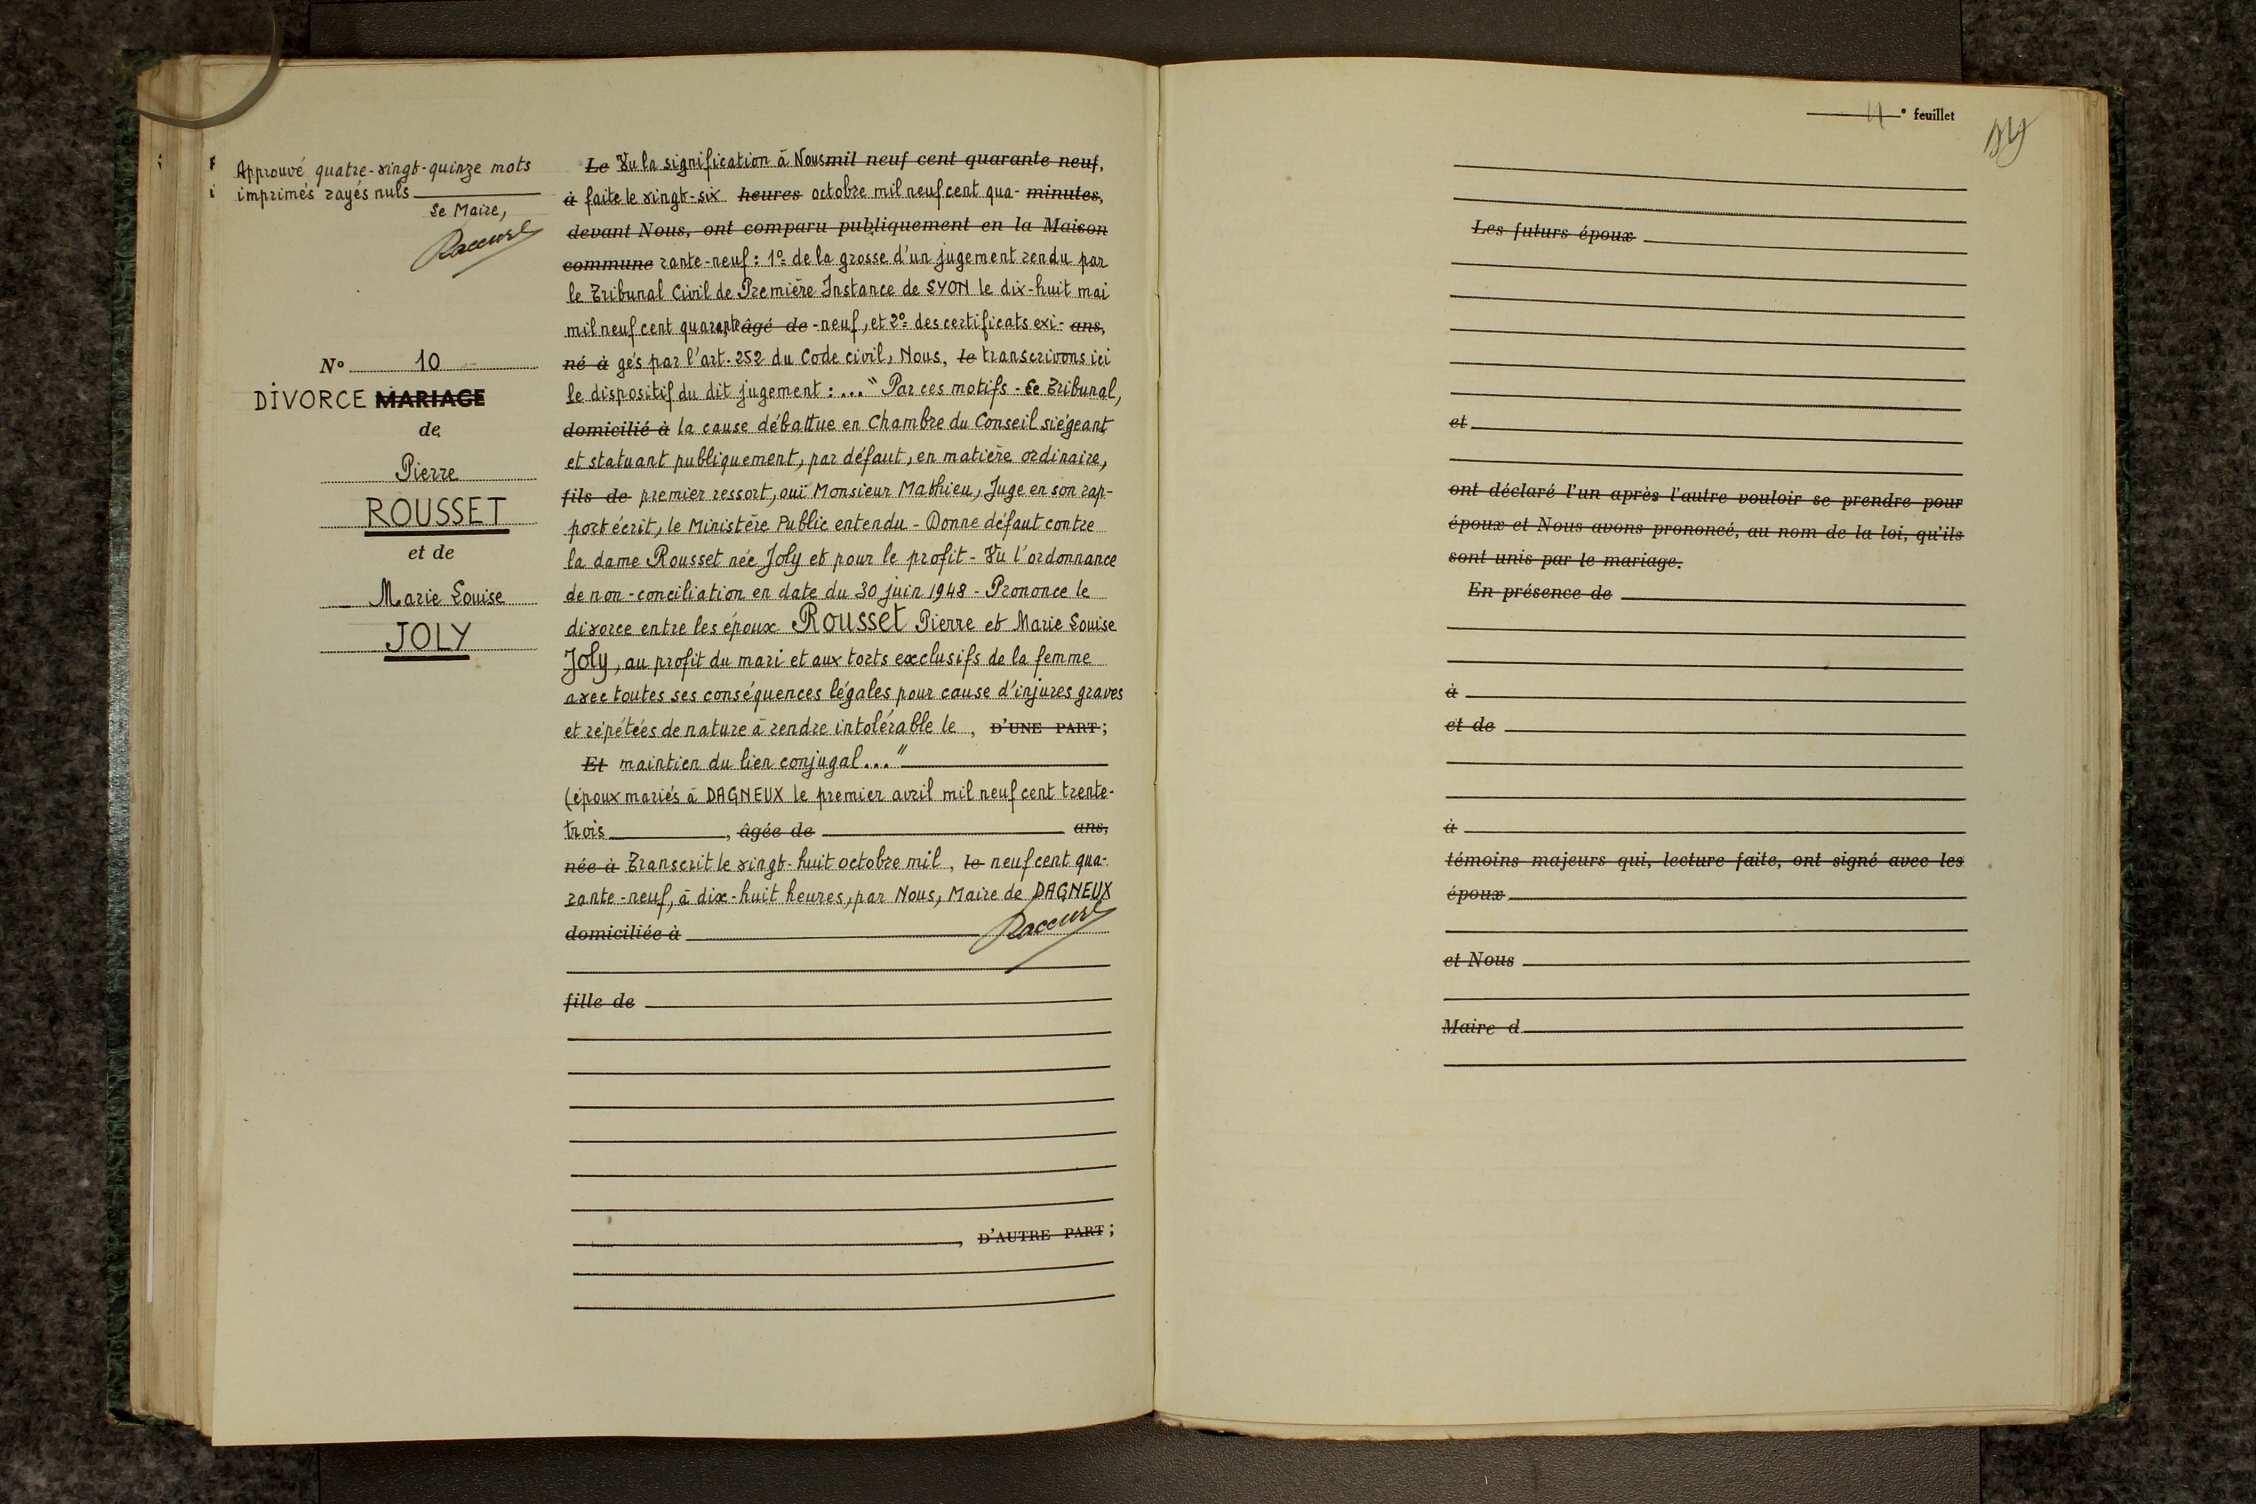 Approuvé quatre-vingt-quinze mots
imprimés rayés nuls
Le Maire,
N° 10
DIVORCE MARIAGE
de
Pierre
ROUSSET
et de
Marie Louise
JOLY
Le Vu la signification à Nous mil neuf cent quarante neuf,
à faite le vingt-six heures octobre mil neuf cent qua- minutes,
devant Nous, ont comparu publiquement en la Maison
commune rante-neuf : 1° de la grosse d'un jugement rendu par
le Tribunal Civil de Première Instance de LYON le dix-huit mai
mil neuf cent quarante âgé de -neuf, et 2° des certificats exi- ans,
né à gés par l'art. 252 du Code civil, Nous, le transcrivons ici
le dispositif du dit jugement : ... " Par ces motifs - Le Tribunal,
domicilié à la cause débattue en Chambre du Conseil siégeant
et statuant publiquement, par défaut, en matière ordinaire,
fils de premier ressort, ouï Monsieur Mathieu, Juge en son rap-
port écrit, le Ministère Public entendu - Donne défaut contre
la dame Rousset née Joly et pour le profit - Vu l'ordonnance
de non-conciliation en date du 30 juin 1948 - Prononce le
divorce entre les époux Rousset Pierre et Marie Louise
Joly, au profit du mari et aux torts exclusifs de la femme
avec toutes ses conséquences légales pour cause d'injures graves
et répétées de nature à rendre intolérable le , D'UNE PART ;
Et maintien du lien conjugal ... "
(époux mariés à DAGNEUX le premier avril mil neuf cent trente-
trois , âgée de ans,
née à Transcrit le vingt-huit octobre mil , le neuf cent qua-
rante-neuf, à dix-huit heures, par Nous, Maire de DAGNEUX
domiciliée à
fille de
, D'AUTRE PART ;
4° feuillet
Les futurs époux
et
ont déclaré l'un après l'autre vouloir se prendre pour
époux et Nous avons prononcé, au nom de la loi, qu'ils
sont unis par le mariage.
En présence de
à
et de
à
témoins majeurs qui, lecture faite, ont signé avec les
époux
et Nous
Maire d